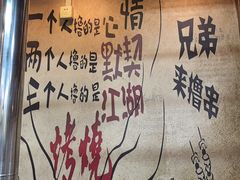 一个人撸的是心情
两个人撸的是默契
三个人撸的是江湖
兄弟
来撸串
烤烧